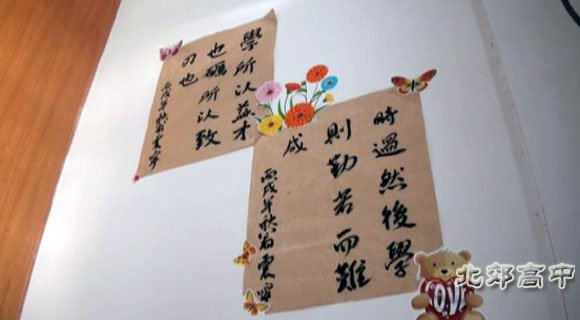 學所以益才
也礪所以致
刃也
丙戌年秋
時過然後學
則勤苦而難
成
丙戌年秋 震寧
LOVE
北郊高中